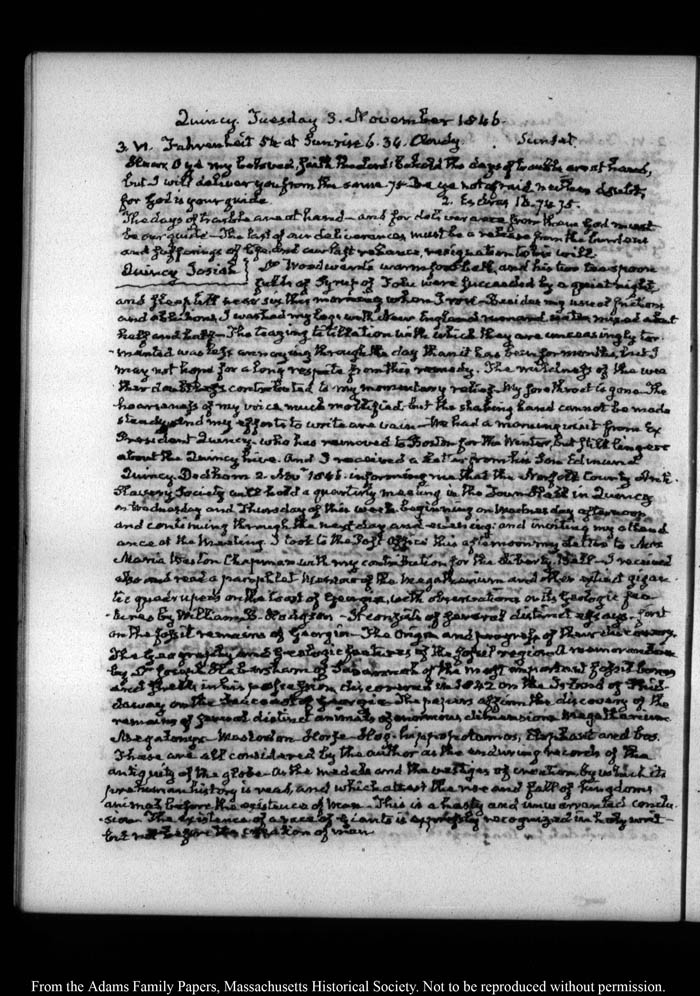 Quincy. Tuesday 3. November 1846.
3. VI. Fahrenheit 54 at Sunrise 6. 34. Cloudy. Sunset
Hear, O ye my beloved, saith the Lord: behold the days of trouble are at hand,
but I will deliver you from the same. 75. Be ye not afraid neither doubt,
for God is your guide. 2. Esdras 16. 74. 75.
The days of trouble are at hand—and for deliverance from them God must
be our guide—The last of our deliverances must be a release from the burdens
and sufferings of life, and our last reliance, resignation to his will.
Quincy Josiah } Dr Woodward's warm foot bath, and his two tea spoon
fulls of Syrup of Tolu were succeeded by a quiet night
and sleep till near six this morning when I rose—Besides my use of friction
and ablutions, I washed my legs with New England rum and water mixed about
half and half—The teazing titillation with which they are unceasingly tor-
mented was less annoying through the day than it has been for months, but I
may not hope for a long respite from this remedy. The mildness of the wea-
ther doubtless contributed to my momentary relief. My sore throat is gone. The
hoarseness of my voice much mollified but the shaking hand cannot be made
steady and my efforts to write are vain—We had a morning visit from Ex
President Quincy—who has removed to Boston for the Winter, but still lingers
about the Quincy hive. And I received a Letter from his Son Edmund
Quincy. Dedham 2. Nov. 1846. informing me that the Norfolk County Anti-
Slavery Society will hold a quarterly meeting in the Town Hall in Quincy
on Wednesday and Thursday of this week, beginning on Wednesday afternoon
and continuing through the next day and evening: and inviting my attend
ance at the Meeting. I took to the Post Office this afternoon my Letter to Mrs
Maria Weston Chapman with my contribution for the Liberty Bell—I received
also and read a pamphlet Memoir of the Megatherium and other extinct gigan-
tic quadrupeds on the Coast of Georgia, with observations on its Geologic fea-
tures by William B. Hodgson—It consists of several distinct essays.
on the fossil remains of Georgia—The Origin and progress of their discovery
The Geography and Geologic features of the fossil region. A memorandum
by Dr Joseph Habersham of Savannah of the most important fossil bones
and teeth in his possession discovered in 1842 on the Island of Skid-
daway on the Seacoast of Georgia. The papers affirm the discovery of the
remains of several distinct animals of enormous dimensions Megatherium
Megalonyx—Mastodon—Horse—Hog—hippopotamus, Elephant and bos.
These are all considered by the author as the enduring records of the
antiquity of the globe—As the medals and the vestiges of creation, by which its
prehuman history is read, and which attest the rise and fall of kingdoms
animal before the existence of Man—This is a hasty and unwarranted conclu-
sion. The existence of a race of Giants is expressly recognized in holy writ—
but not before the creation of man
From the Adams Family Papers, Massachusetts Historical Society. Not to be reproduced without permission.